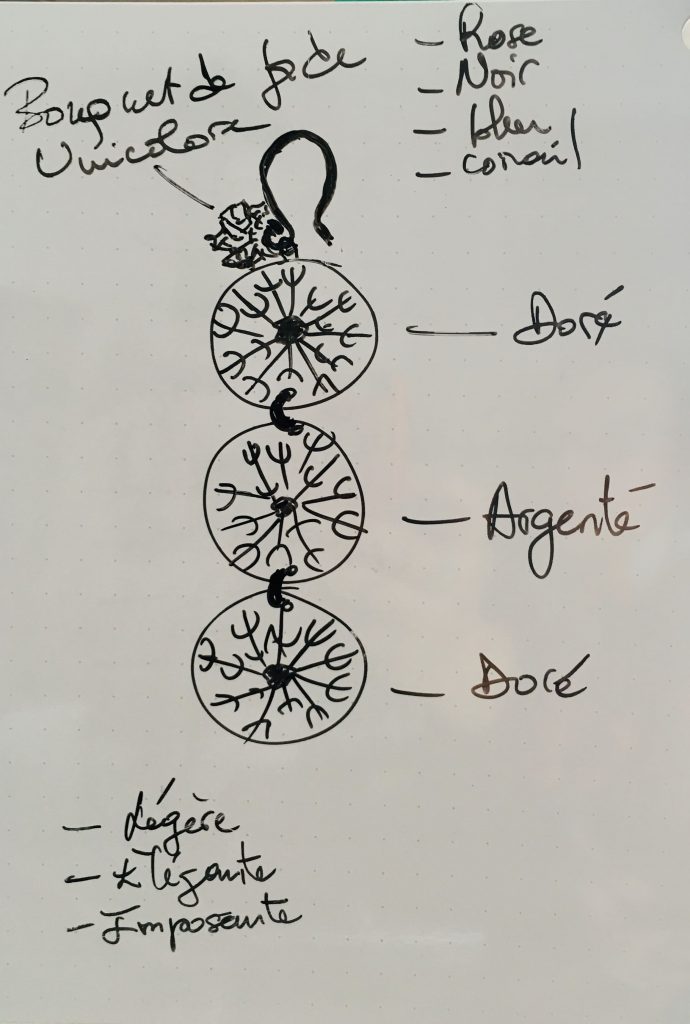 Bouquet de jade
Unicolore
- Rose
- Noir
- bleu
- corail
Doré
Argenté
Doré
- Légère
- Elégante
- Imposante